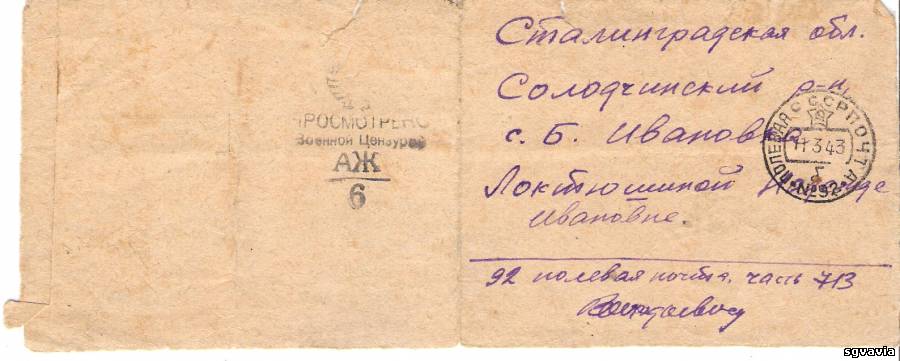 ПРОСМОТРЕНО
Военной Цензурой
АЖ
6
Сталинградская обл.
Солодчинский р-н,
с. Б. Ивановка
Локтюшиной
Ивановне.
СССР ПОЧТА
ПОЛЕВАЯ
11 3 43
№92
92 полевая почта. часть 713
sgvavia